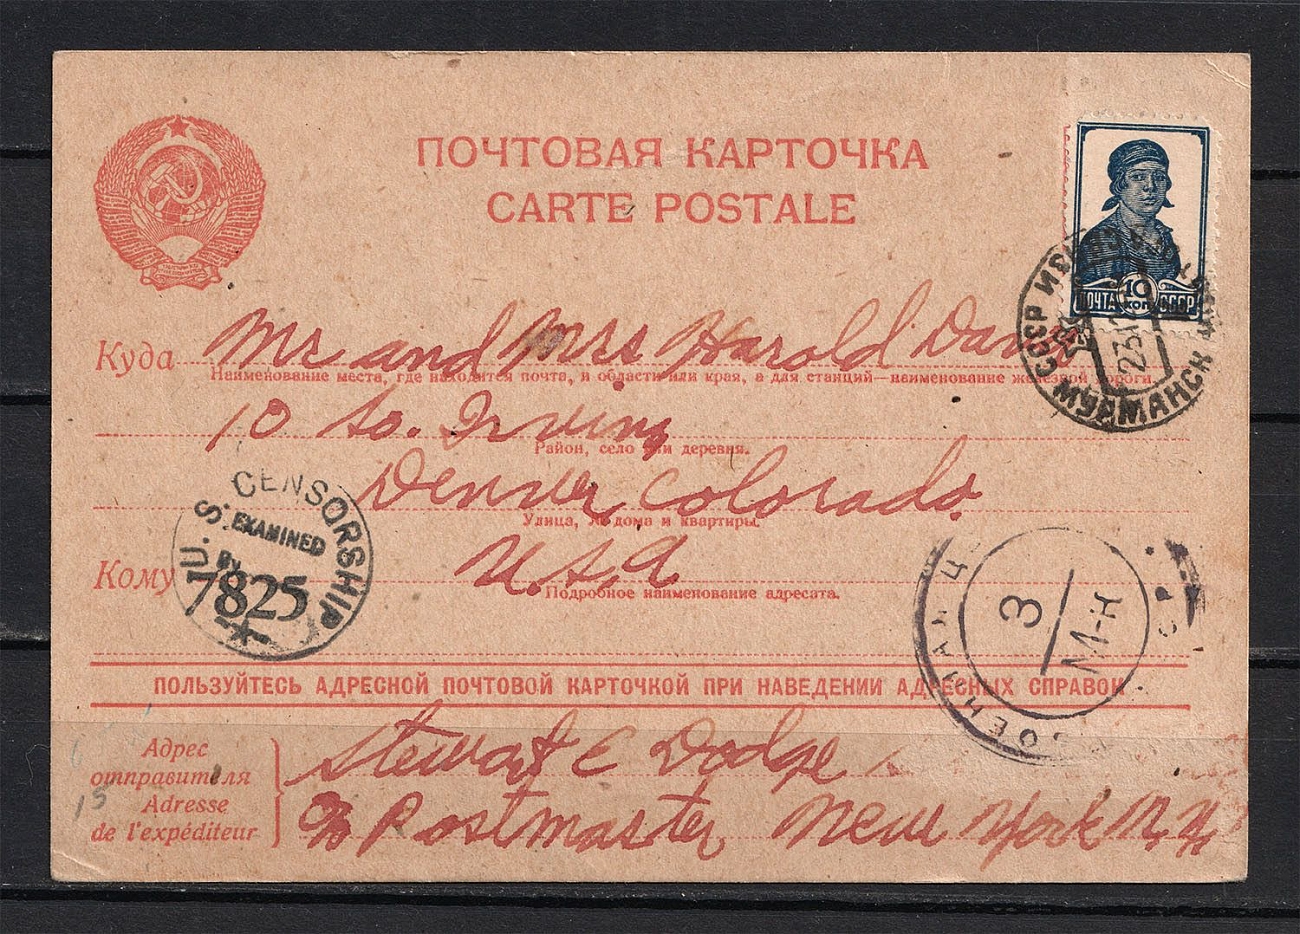 ПОЧТОВАЯ КАРТОЧКА
CARTE POSTALE
10
КОП
ПОЧТА СССР
СССР МУРМАНСК
23
Куда
Mr and Mrs Harold
Наименование места, где находится почта, и области или края, а для станций—наименование железной дороги.
10 So. Irving
Район, село или деревня.
Denver Colorado.
Улица, № дома и квартиры.
Кому
U.S.A
Подробное наименование адресата.
U. S. CENSORSHIP
EXAMINED
By
7825
3
М-н
ПОЛЬЗУЙТЕСЬ АДРЕСНОЙ ПОЧТОВОЙ КАРТОЧКОЙ ПРИ НАВЕДЕНИИ АДРЕСНЫХ СПРАВОК
Адрес
отправителя
Adresse
de l'expéditeur
Stewart E Dodge
c/o Postmaster New York N.Y.
15